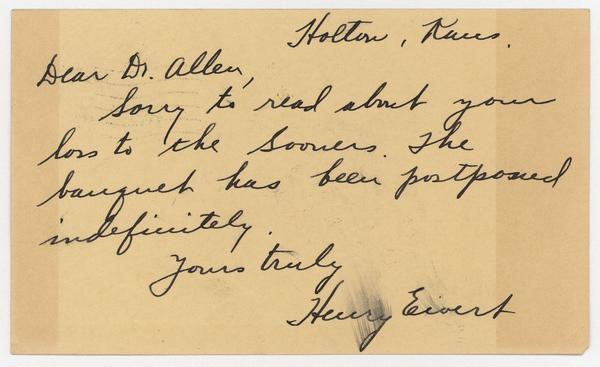 Holton, Kans.
Dear Dr. Allen,
Sorry to read about your
loss to the Sooners. The
banquet has been postponed
indefinitely.
Yours truly
Henry Eivert